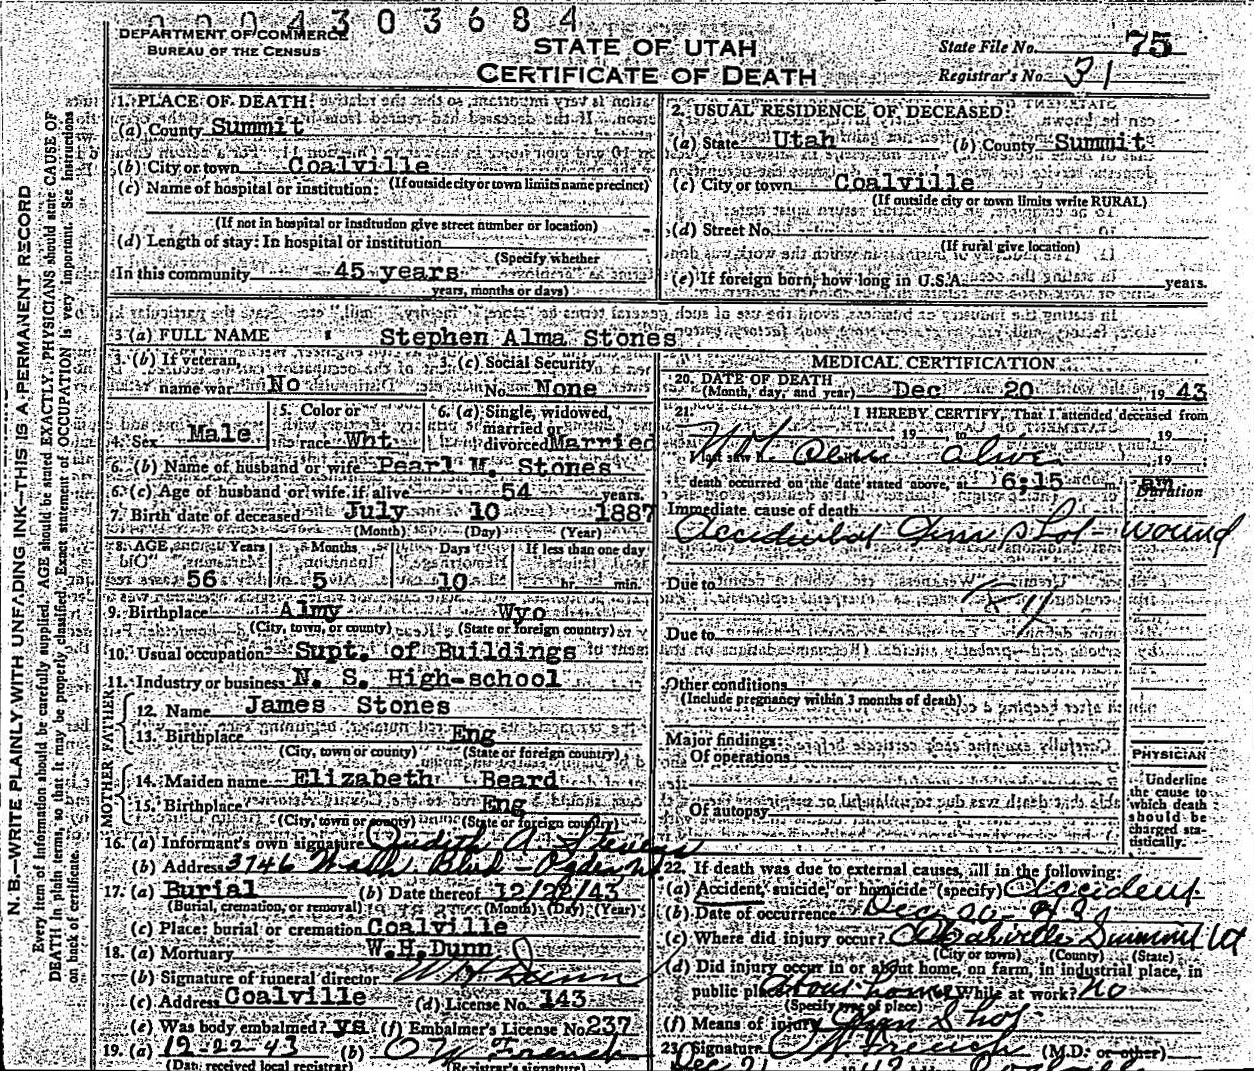 0004303684
DEPARTMENT OF COMMERCE
BUREAU OF THE CENSUS
STATE OF UTAH
CERTIFICATE OF DEATH
State File No. 75
Registrar's No. 31
N. B.—WRITE PLAINLY WITH UNFADING INK—THIS IS A PERMANENT RECORD
Every item of information should be carefully supplied. AGE should be stated EXACTLY. PHYSICIANS should state CAUSE OF
DEATH in plain terms, so that it may be properly classified. Exact statement of OCCUPATION is very important. See instructions
on back of certificate.
1. PLACE OF DEATH:
(a) County Summit
(b) City or town Coalville
(If outside city or town limits name precinct)
(c) Name of hospital or institution:
(If not in hospital or institution give street number or location)
(d) Length of stay: In hospital or institution
(Specify whether
In this community 45 years
years, months or days)
2. USUAL RESIDENCE OF DECEASED:
(a) State Utah (b) County Summit
(c) City or town Coalville
(If outside city or town limits write RURAL)
(d) Street No.
(If rural give location)
(e) If foreign born, how long in U.S.A. years.
3 (a) FULL NAME Stephen Alma Stones
3. (b) If veteran, name war No
3. (c) Social Security No. None
4. Sex Male
5. Color or race Wht
6. (a) Single, widowed, married or divorced Married
6. (b) Name of husband or wife Pearl M. Stones
6. (c) Age of husband or wife if alive 54 years.
7. Birth date of deceased July 10 1887
(Month) (Day) (Year)
8. AGE Years Months Days If less than one day
56 5 10 hr. min.
9. Birthplace Almy Wyo
(City, town, or county) (State or foreign country)
10. Usual occupation Supt. of Buildings
11. Industry or business N. S. High-school
FATHER
12. Name James Stones
13. Birthplace Eng
(City, town or county) (State or foreign country)
MOTHER
14. Maiden name Elizabeth Beard
15. Birthplace Eng
(City, town or county) (State or foreign country)
16. (a) Informant's own signature Judith A Stevens
(b) Address 3746 Blvd - Ogden
17. (a) Burial (b) Date thereof 12/22/43
(Burial, cremation, or removal) (Month) (Day) (Year)
(c) Place: burial or cremation Coalville
18. (a) Mortuary W.H.Dunn
(b) Signature of funeral director W H Dunn
(c) Address Coalville (d) License No. 143
(e) Was body embalmed? ys (f) Embalmer's License No 237
19. (a) 12-22-43 (b) O W French
(Date received local registrar) (Registrar's signature)
MEDICAL CERTIFICATION
20. DATE OF DEATH
(Month, day, and year) Dec 20 19 43
21. I HEREBY CERTIFY, That I attended deceased from
19 to 19
last saw h alive 19
death occurred on the date stated above, at 6:15 m. am
Duration
Immediate cause of death
Accidental Gun Shot wound
Due to
Due to
Other conditions
(Include pregnancy within 3 months of death)
Major findings:
Of operations
Of autopsy
PHYSICIAN
Underline
the cause to
which death
should be
charged sta-
tistically.
22. If death was due to external causes, fill in the following:
(a) Accident, suicide, or homicide (specify) Accident
(b) Date of occurrence Dec 20-43
(c) Where did injury occur? Coalville Summit Ut
(City or town) (County) (State)
(d) Did injury occur in or about home, on farm, in industrial place, in
public place about home While at work? No
(Specify type of place)
(f) Means of injury Gun Shot
23. Signature O W French (M.D. or other)
Dec 21